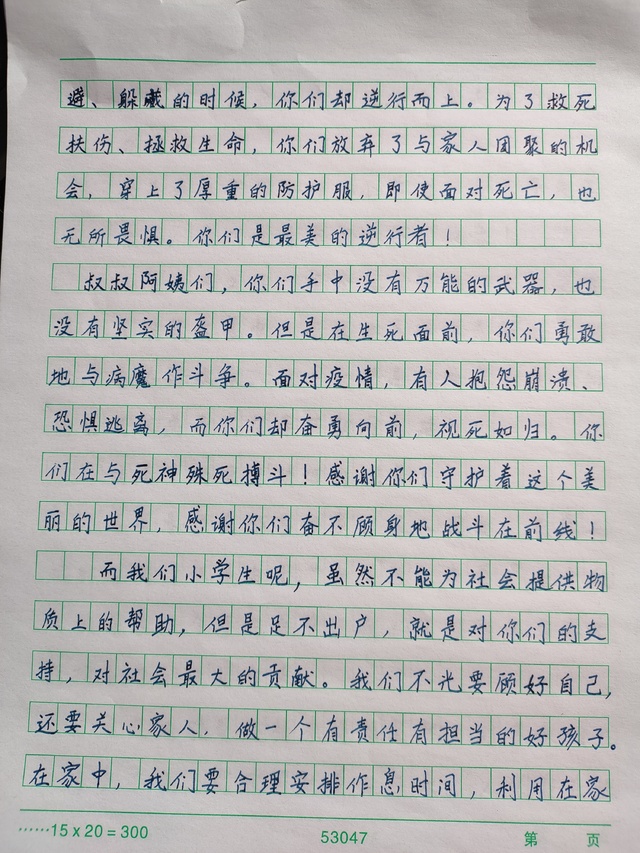 避、躲藏的时候，你们却逆行而上。为了救死
扶伤、拯救生命，你们放弃了与家人团聚的机
会，穿上了厚重的防护服，即使面对死亡，也
无所畏惧。你们是最美的逆行者！
叔叔阿姨们，你们手中没有万能的武器，也
没有坚实的盔甲。但是在生死面前，你们勇敢
地与病魔作斗争。面对疫情，有人抱怨崩溃、
恐惧逃离，而你们却奋勇向前，视死如归。你
们在与死神殊死搏斗！感谢你们守护着这个美
丽的世界，感谢你们奋不顾身地战斗在前线！
而我们小学生呢，虽然不能为社会提供物
质上的帮助，但是足不出户，就是对你们的支
持，对社会最大的贡献。我们不光要顾好自己，
还要关心家人，做一个有责任有担当的好孩子。
在家中，我们要合理安排作息时间，利用在家
······15×20=300 53047 第 页